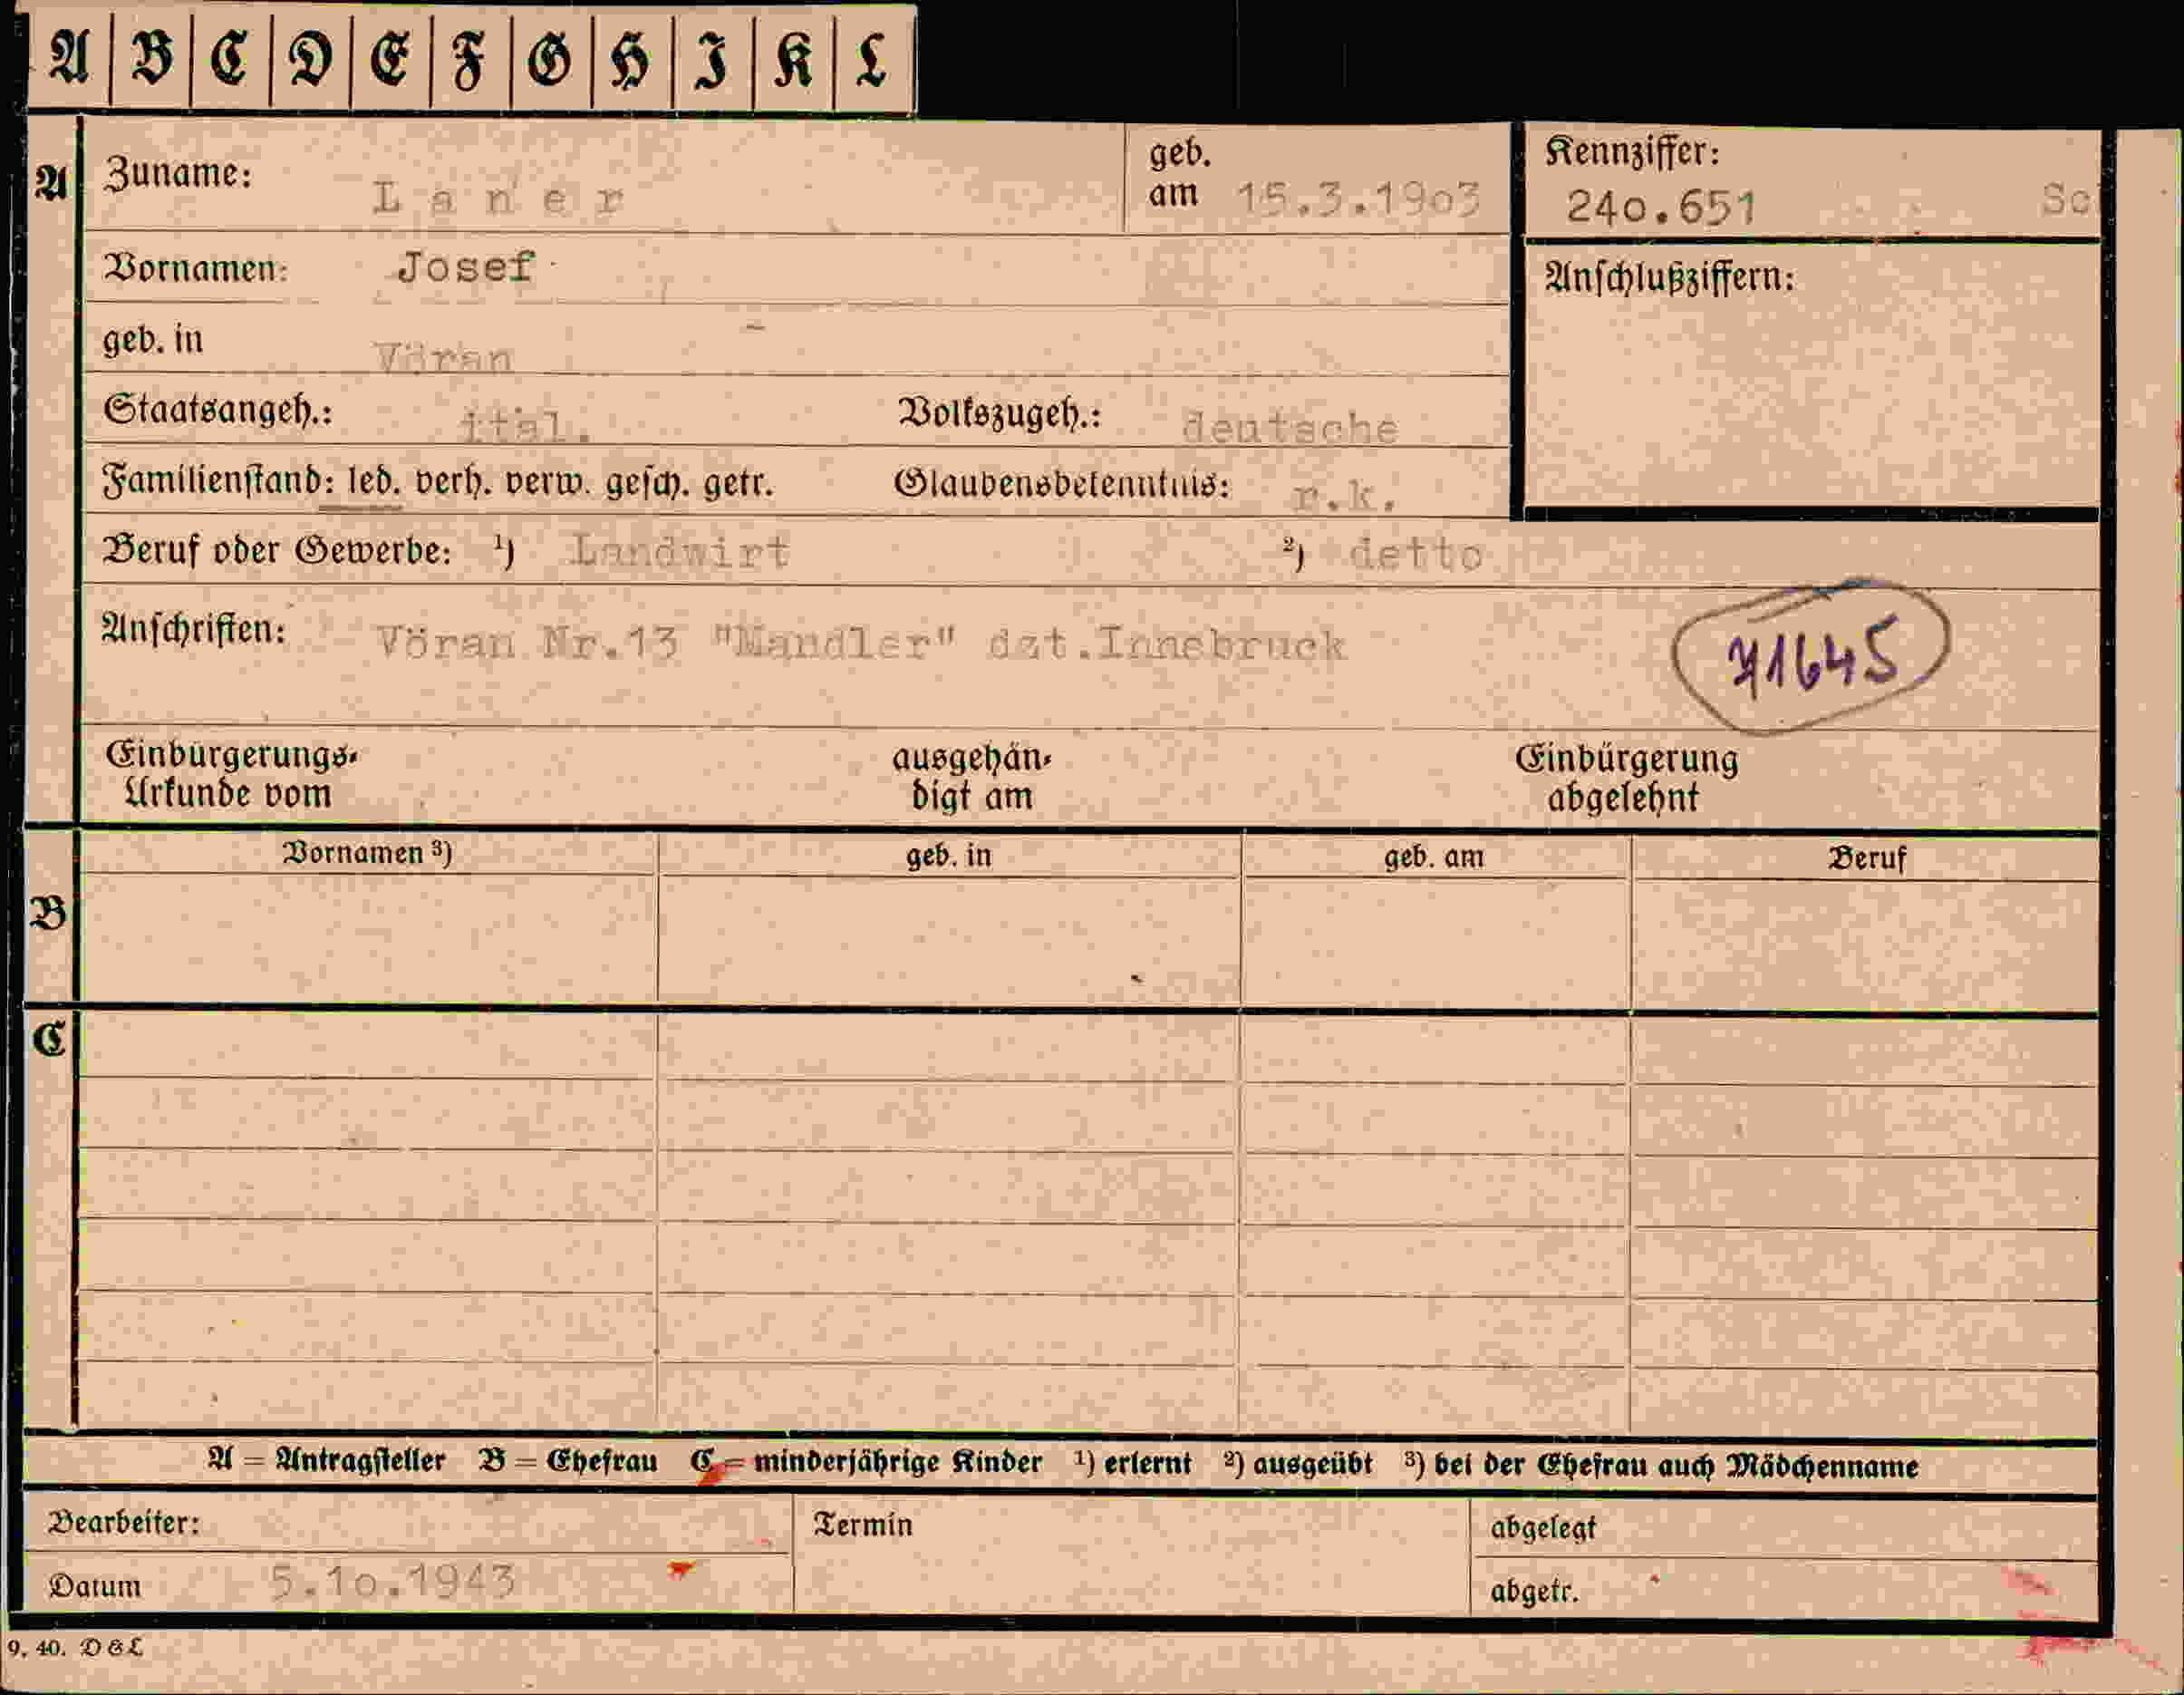 A B C D E F G H I K L
A Zuname: Laner geb. am 15.3.1903 Kennziffer: 240.651
Vornamen: Josef Anschlußziffern:
geb. in Vöran
Staatsangeh.: ital. Volkszugeh.: deutsche
Familienstand: led. verh. verw. gesch. getr. Glaubensbekenntnis: r.k.
Beruf oder Gewerbe: ¹) Landwirt ²) detto
Anschriften: Vöran Nr.13 "Mandler" dzt.Innsbruck 71645
Einbürgerungs- ausgehän- Einbürgerung
Urkunde vom digt am abgelehnt
Vornamen ³) geb. in geb. am Beruf
B
C
A = Antragsteller B = Ehefrau C = minderjährige Kinder ¹) erlernt ²) ausgeübt ³) bei der Ehefrau auch Mädchenname
Bearbeiter: Termin abgelegt
Datum 5.10.1943 abgetr.
9. 40. D&L